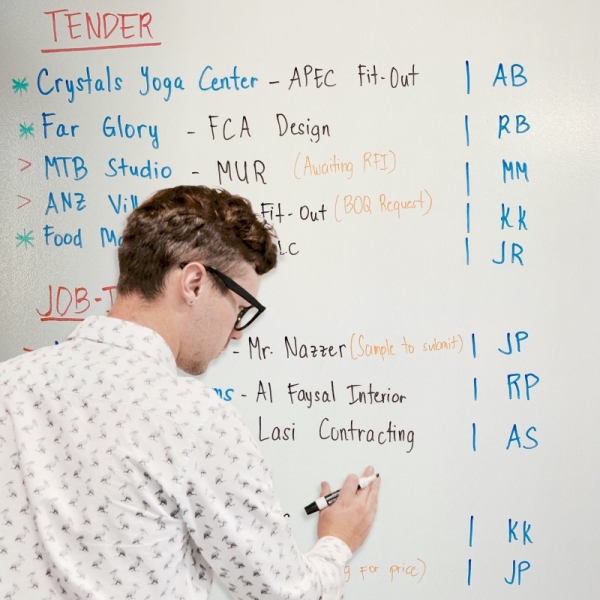 TENDER
* Crystals Yoga Center - APEC Fit-Out | AB
* Far Glory - FCA Design | RB
> MTB Studio - MUR (Awaiting RFI) | MM
> ANZ Fit-Out (BOQ Request) | KK
* Food | JR
JOB-
- Mr. Nazzer (Sample to submit) | JP
- Al Faysal Interior | RP
Lasi Contracting | AS
| KK
for price) | JP